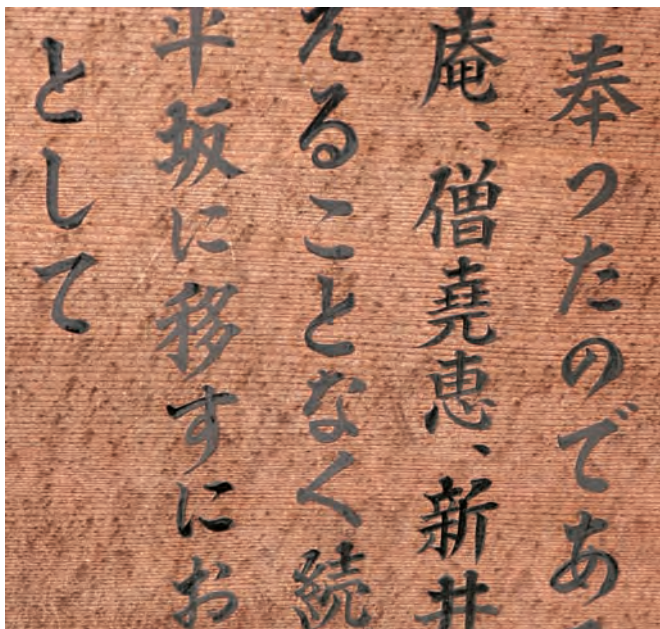 奉ったのであ
庵、僧堯恵、新井
えることなく続
平坂に移すにお
として